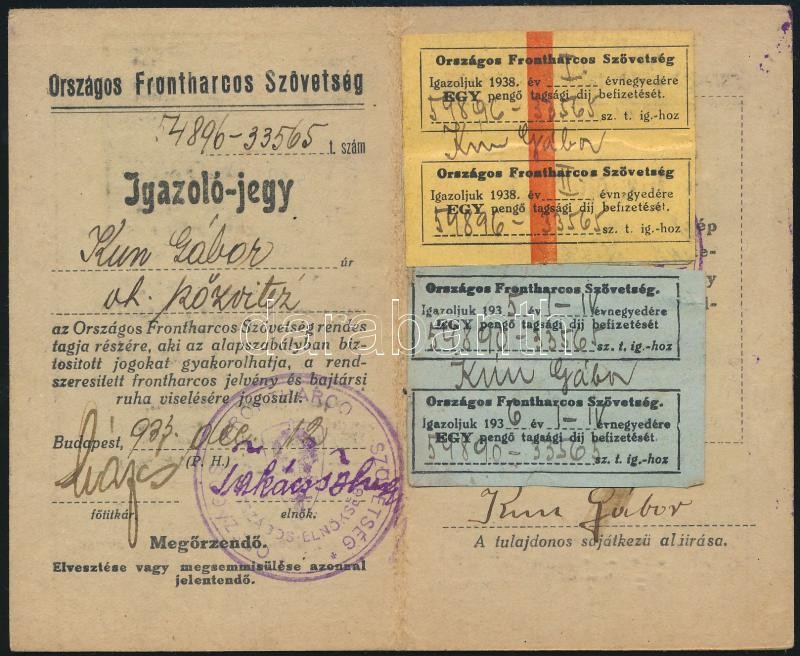 Országos Frontharcos Szövetség
54896-33565 t. szám
Igazoló-jegy
Kun Gábor úr
az Országos Frontharcos Szövetség rendes
tagja részére, aki az alapszabályban biz-
tositott jogokat gyakorolhatja, a rend-
szeresitett frontharcos jelvény és bajtársi
ruha viselésére jogosult.
Budapest, 937. dec. 12
(P. H.)
főtitkár. elnök.
Megőrzendő.
Elvesztése vagy megsemmisülése azonnal
jelentendő.
Országos Frontharcos Szövetség
Igazoljuk 1938. év I. évnegyedére
EGY pengő tagsági dij befizetését.
59896-33565 sz. t. ig.-hoz
Kun Gábor
Országos Frontharcos Szövetség
Igazoljuk 1938. év II. évnegyedére
EGY pengő tagsági dij befizetését.
59896-33565 sz. t. ig.-hoz
Országos Frontharcos Szövetség.
Igazoljuk 1935 év I-IV évnegyedére
EGY pengő tagsági dij befizetését
59890-33565 sz. t. ig.-hoz
Kun Gábor
Országos Frontharcos Szövetség.
Igazoljuk 1936 év I-IV évnegyedére
EGY pengő tagsági dij befizetését.
59890-33565 sz. t. ig.-hoz
Kun Gábor
A tulajdonos sajátkezü aláirása.
darabanth